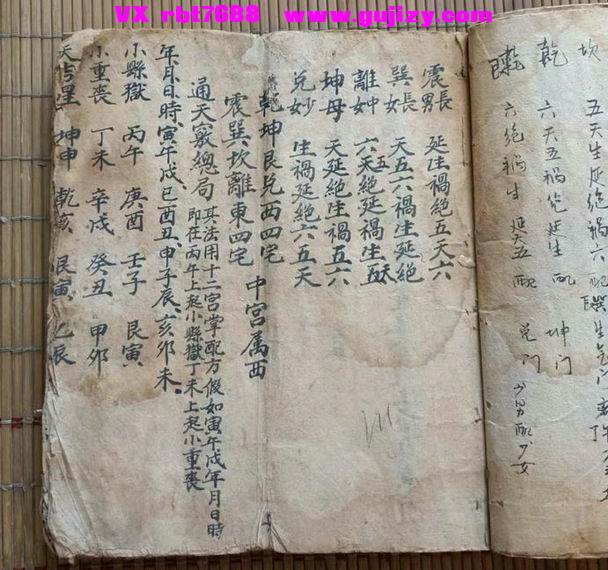 VX rbt7688 www.gujizy.com
坎 五天生延絕禍六
乾 六天五禍絕延生 配 坤门
艮 六絕禍生 延天五 配 兑门 少男配少女
震長男 延生禍絕五天六
巽長女 天五六禍生延絕
離中女 六天五絕延禍生
坤母 天延絕生禍五六
兑少女 生禍延絕六五天
乾坤艮兑西四宅 中宫属西
震巽坎離東四宅
通天竅總局 其法用十二宫掌配方假如寅午戌年月日時
即在丙午上起小縣獄丁未上起小重喪
年月日時寅午戌巳酉丑、申子辰、亥卯未、
小縣獄 丙午 庚酉 壬子 艮寅
小重喪 丁未 辛戌 癸丑 甲卯
坤申 乾亥 艮寅 乙辰